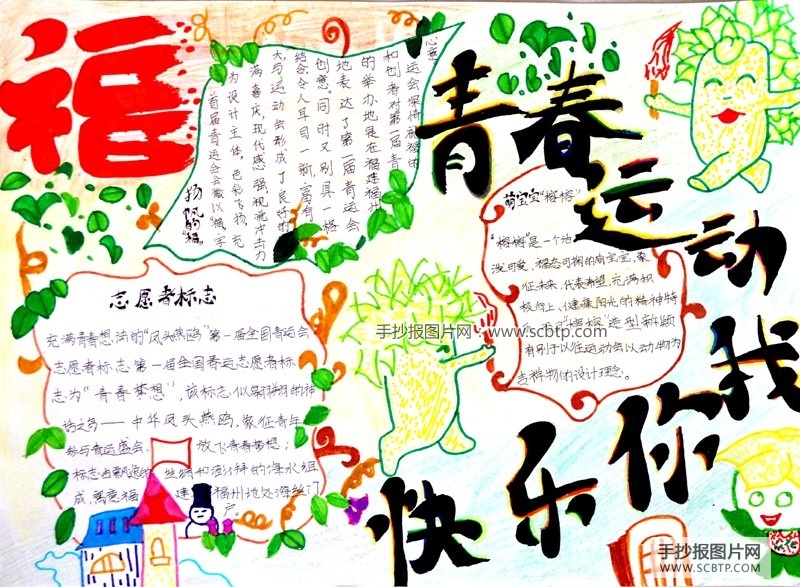 福
扬帆的"福"
首届青运会会徽以"福"字
为设计主体，色彩飞扬，充
满喜庆，现代感强，视觉冲击力
大，与运动会形成了良好的
结合，令人耳目一新，富有
创意。同时又别具一格
地表达了第一届青运会
的举办地是在福建福州
和创者对第一届青
运会深情祝福的
心意！
青春运动我
快乐你
萌宝宝"榕榕"
"榕榕"是一个活
泼可爱、憨态可掬的萌宝宝，象
征未来，代表希望，充满积
极向上、健康阳光的精神特
"榕榕"造型新颖
有别于以往运动会以动物为
吉祥物的设计理念。
志愿者标志
充满青春想法的"凤头燕鸥"第一届全国青运会
志愿者标志 第一届全国青运志愿者标
志为"青春梦想"，该标志，似
——中华凤头燕鸥，象征青年
参与青运盛会， 放飞青春梦想；
标志由 丝绸和澎湃的海水组
成，寓意福 建 福州地处海丝门
户。
手抄报图片网 www.scbtp.com
手抄报图片网
WWW.SCBTP.COM